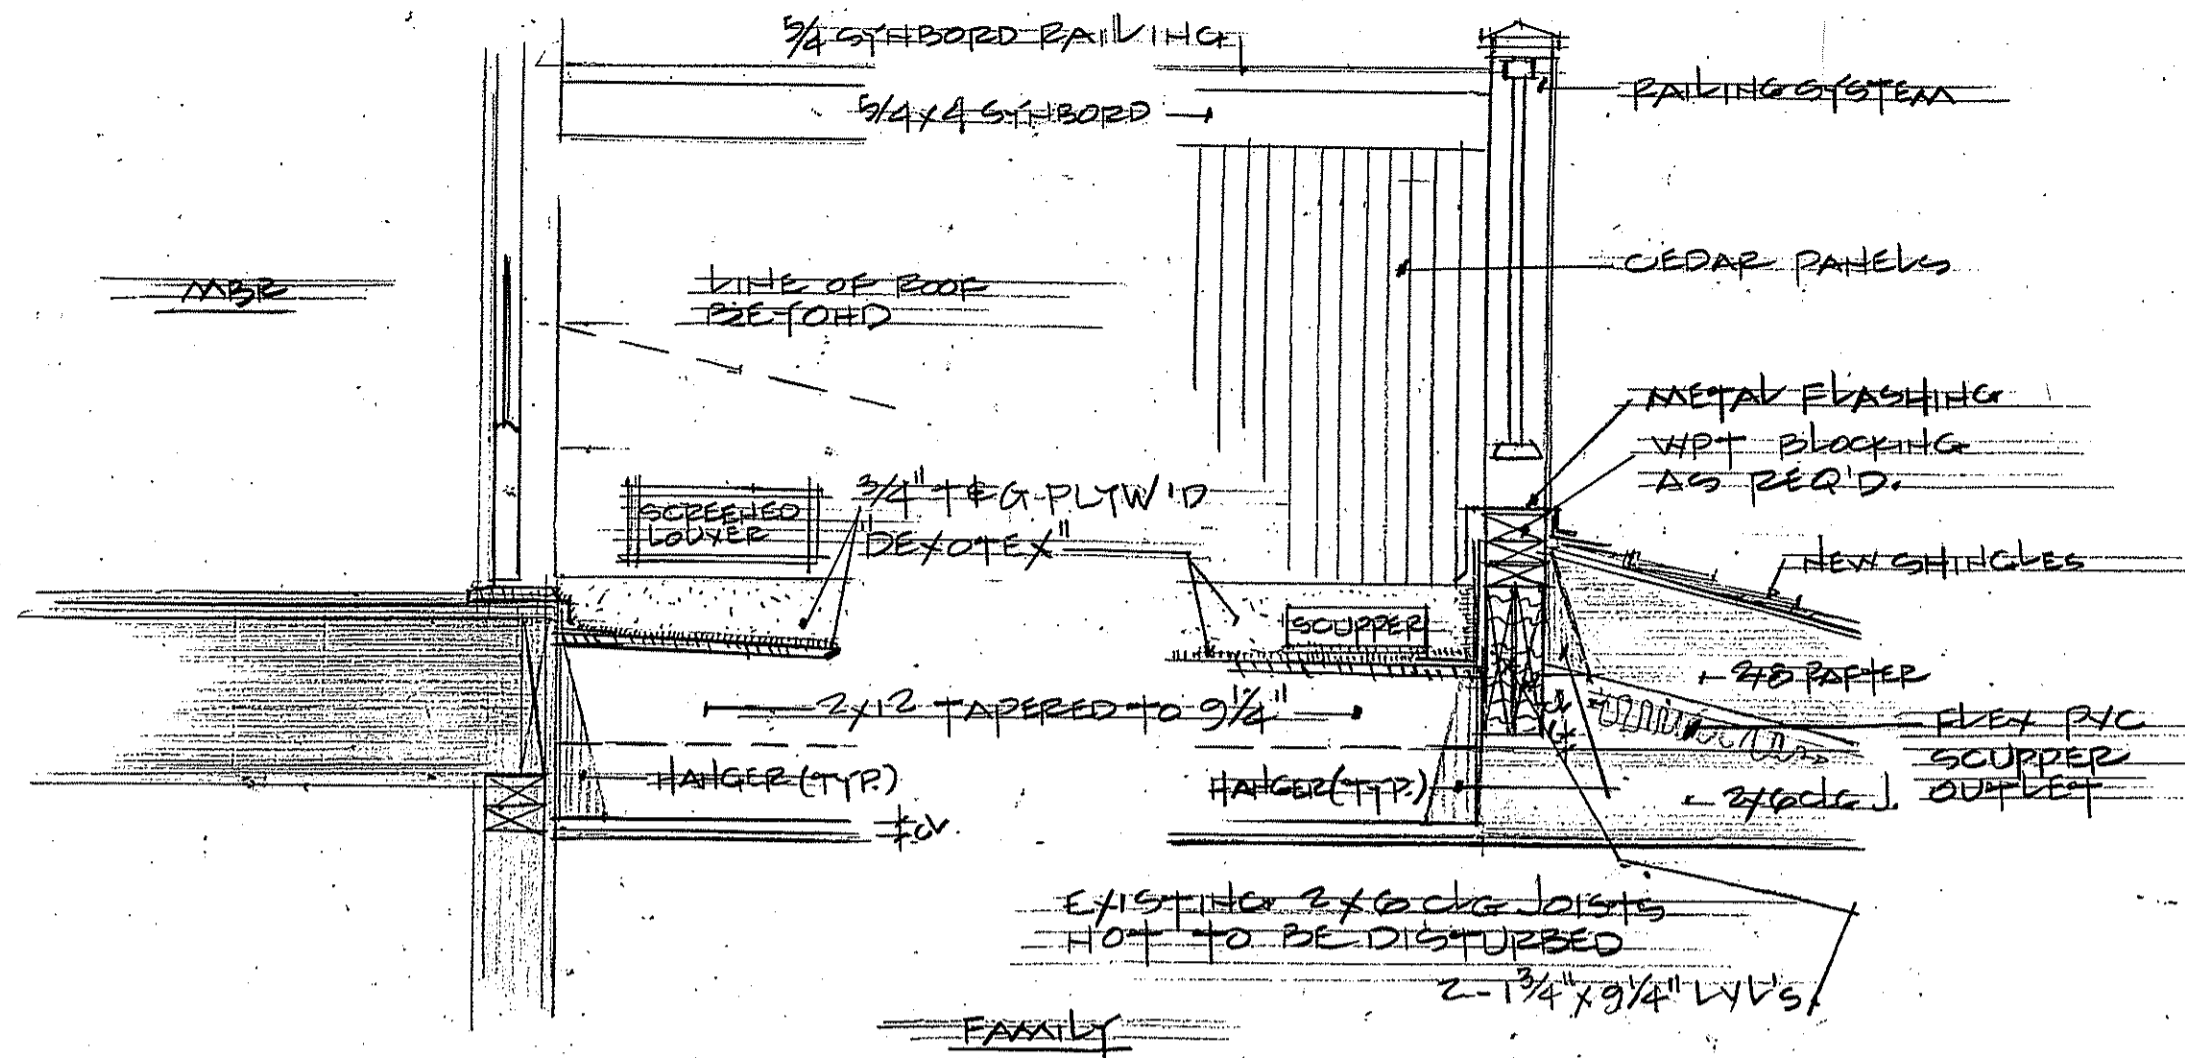 5/4 SYNBORD RAILING
RAILING SYSTEM
5/4 X 4 SYNBORD
CEDAR PANELS
MBR
LINE OF ROOF
BEYOND
METAL FLASHING
WPT BLOCKING
AS REQ'D.
3/4" T&G PLYW'D
"DEXOTEX"
SCREENED
LOUVER
NEW SHINGLES
SCUPPER
2X8 RAFTER
2X12 TAPERED TO 9 1/4"
FLEX PVC
SCUPPER
OUTLET
HANGER (TYP.)
HANGER (TYP.)
2X6 CLG J.
EXISTING 2X6 CLG JOISTS
NOT TO BE DISTURBED
2-1 3/4" X 9 1/4" LVL'S
FAMILY